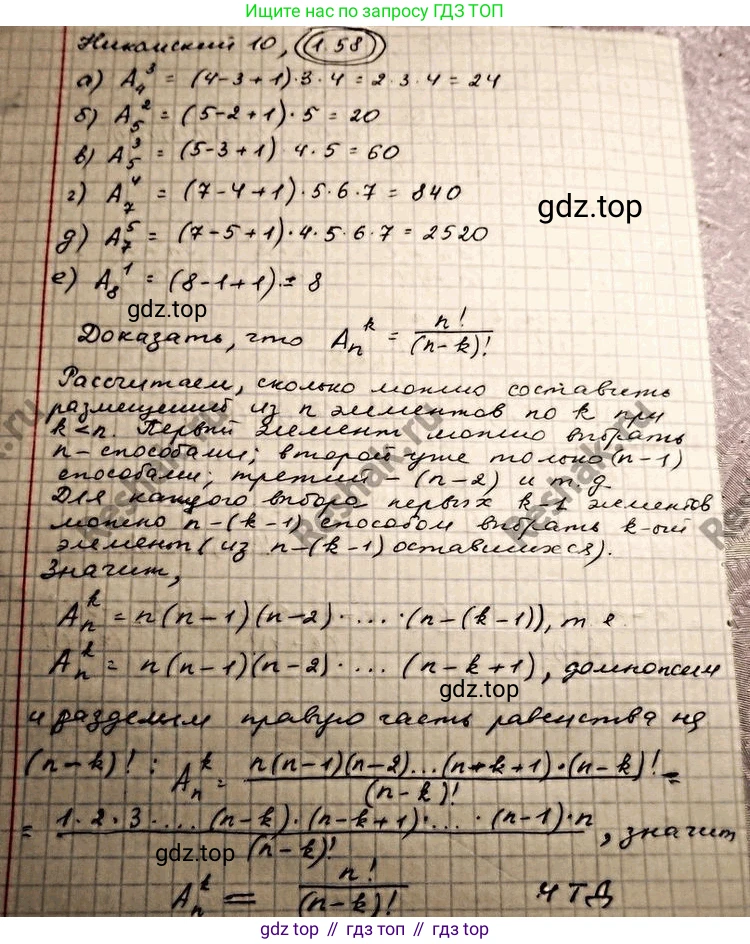 Ищите ГДЗ по запросу ГДЗ ТОП
Никольский 10, 1.58
а) A₄³ = (4-3+1)·3·4 = 2·3·4 = 24
б) A₅² = (5-2+1)·5 = 20
в) A₅³ = (5-3+1) 4·5 = 60
г) A₇⁴ = (7-4+1)·5·6·7 = 840
gdz.top
д) A₇⁵ = (7-5+1)·4·5·6·7 = 2520
е) A₈¹ = (8-1+1) = 8
gdz.top
Доказать, что Aₙᵏ = n!/(n-k)!
Рассчитаем, сколько можно составить
размещений из n элементов по k при
k<n. Первый элемент можно выбрать
n-способами; второй уже только (n-1)
способами; третий - (n-2) и т.д
Для каждого выбора первых k-1 элементов
можно n-(k-1) способом выбрать k-ый
элемент (из n-(k-1) оставшихся).
Значит,
Aₙᵏ = n(n-1)(n-2)·...·(n-(k-1)), т.е
Aₙᵏ = n(n-1)(n-2)·... (n-k+1), домножим
gdz.top
и разделим правую часть равенства на
(n-k)! : Aₙᵏ = n(n-1)(n-2)...(n-k+1)·(n-k)!/(n-k)! =
= 1·2·3·...(n-k)·(n-k+1)·...·(n-1)·n/(n-k)!, значит
gdz.top
Aₙᵏ = n!/(n-k)! ЧТД
Reshak.ru
Reshak.ru
Reshak.ru
gdz.top // gdz.top // gdz.top // gdz.top